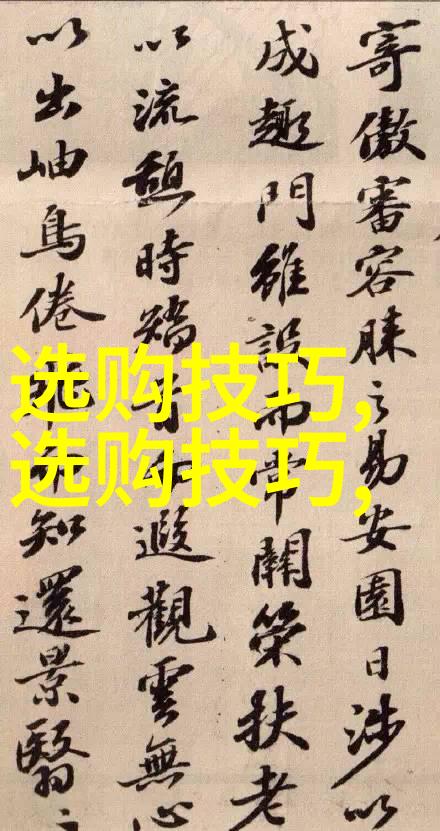 寄傲審容膝之易安園日涉以
成趣門雖設而常關策扶老
以流憩時矯首而遐觀雲無心
以出岫鳥倦飛而知還景翳
选购技巧,
选购技巧,